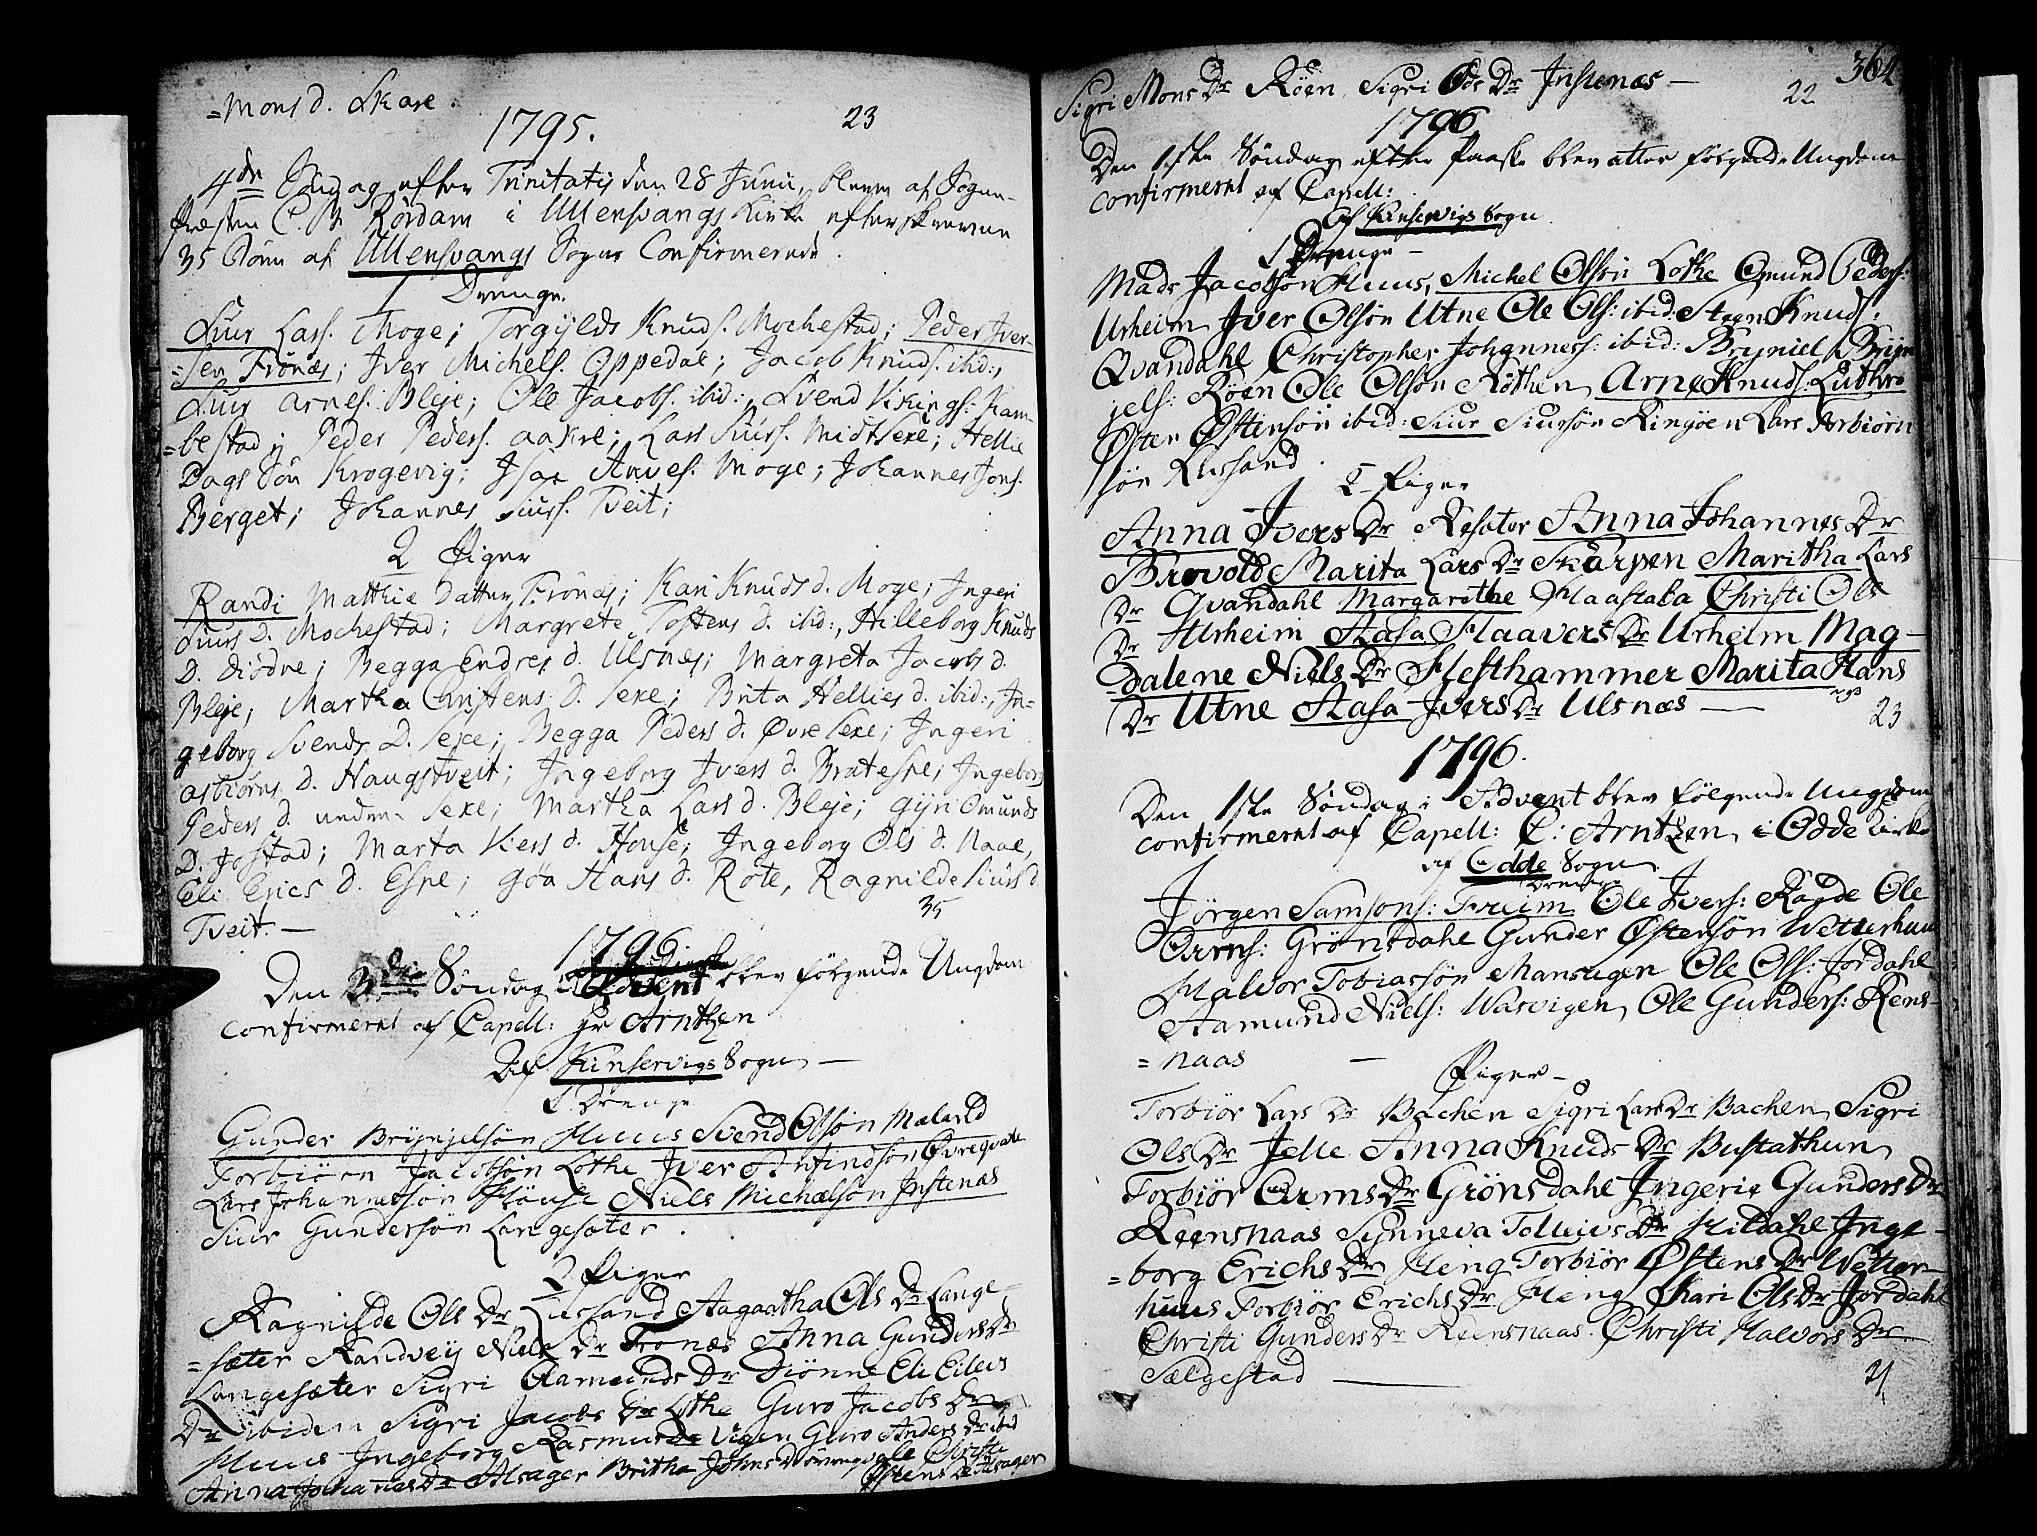 =Mons d. Skare.
1795. 23
4de Søndag efter Trinitatis den 28 Junii, bleven af Sogne-
Præsten C. B. Rördam i Ullensvangs Kirke efterskrevne
35 Børn af Ullensvangs Sogn Confirmerede.
1 Drenge.
Siur Lars. Moge; Torgylds Knuds. Mochestad; Peder Iver-
=sen Frönæs; Iver Michels. Oppedal; Jacob Knuds. ibid:,
Siur Arnes. Bleje; Ole Jacobs. ibid:, Svend Vikings: Kam-
=bestad; Peder Peders. Aakre; Lars Siurs. Midtsexe; Hellie
Dags Sön Krogevig; Isac Arnes. Moge; Johannes Jons.
Berget; Johannes Siurs. Tveit;
2 Piger
Randi Matthie Datter Frönæs; Kari Knuds d. Moge; Ingeri
Siurs D. Mochestad; Margrete Tostens d. ibid:, Hilleborg Knuds
D. Diödne; Begga Endres d. Ulsnæs; Margreta Jacobs d.
Bleje; Martha Christens D. Sexe; Brita Hellies d. ibid:, In=
geborg Svends D. Sexe; Begga Peders d. Øvre Sexe; Ingeri
Asbiörns D. Haugstveit; Ingeborg Ivers d. Bratespe; Ingeborg
Peders d. neden Sexe; Martha Lars d. Bleje; Gyri Omunds
D. Jostad; Marta Viers d. House; Ingeborg Ols d. Naae,
Eli Erics d. Espe; Göa Hans d. Rote, Ragnilde Siurs d
Tveit.— 35
1796
Den 3die Söndag Advent blev fölgende Ungdom
confirmeret af Capell: Hr Arntzen
Af Kinservigs Sogn —
1 Drenge
Gunder Brynjelsön Huus Svend Olsön Mæland
Torbiörn Jacobsön Lothe Iver Anfindsön Øvreqvale
Lars Johannesön Flöuse Niels Michælsön Instenæs
Siur Gundersön Langesæter.
2 Piger
Ragnilde Ols Dr Lussand Aagaatha Ols Dr Lange-
=sæter Randvey Niels Dr Tronæs Anna Gunders Dr
Langesæter Sigri Aamunds Dr Diönne Eli Eilevs
Dr ibidem Sigri Jacobs Dr Lothe Guro Jacobs Dr
Huus Ingeborg Rasmus Dr Vigen Guro Anders Dr ibid
Anna Johannes Dr Alsager Britha Johns D Christi
Østens Dr Alsager
Sigri Mons Dr Röen Sigri Ods Dr Instenæs — 22 364
1796
Den 1ste Söndag efter Paaske blev atter fölgende Ungdom
confirmeret af Capell:
Af Kinservigs Sogn.
1 Drenge —
Mads Jacobsön Huus, Michel Olsön Lothe Omund Peders:
Urheim Iver Olsön Utne Ole Ols: ibid: Steen Knuds:
Qvandahl Christopher Johannes: ibid: Bryniel Bryn
jels: Röen Ole Olsön Röthen Arne Knuds. Luthro
Østen Østensön ibid: Siur Siursön Ringöen Lars Torbiörn
sön Lussand.
2 Piger
Anna Ivers Dr Resater Anna Johannes Dr
Brovold Marita Lars Dr Skarpen Maritha Lars
Dr Qvandahl Margarethe Haastaba Christi Ols
Dr Urheim Aasa Haavers Dr Urheim Mag-
=dalene Niels Dr Hesthammer Marita Hans
Dr Utne Aasa Ivers Dr Ulsnæs — 23
1796.
Den 1ste Söndag i Advent blev fölgende Ungdom
confirmeret af Capell: C: Arntzen i Odde Kirke
af Odde Sogn
Drenge
Jörgen Samsons: Freim Ole Ivers: Ragde Ole
Orms: Grönsdahl Gunder Østensön Wetterhuus
Halvor Tobiassön Mansagen Ole Ols: Jordahl
Aamund Niels: Wasvigen Ole Gunders: Rens-
=naas —
Piger —
Torbiör Lars Dr Bachen Sigri Lars Dr Bachen Sigri
Ols Dr Jelle Anna Knuds Dr Bustathun
Torbiör Orms Dr Grönsdahl Ingerie Gunders Dr
Reensnaas Synneva Tollevs Dr Hildahl Inge-
=borg Erichs Dr Meng Torbiör Østens Dr Wetter-
huus Torbiör Erichs Dr Meng Chari Ols Dr Jordahl
Christi Gunders Dr Reensnaas. Christi Halvors Dr
Sælgestad — 21